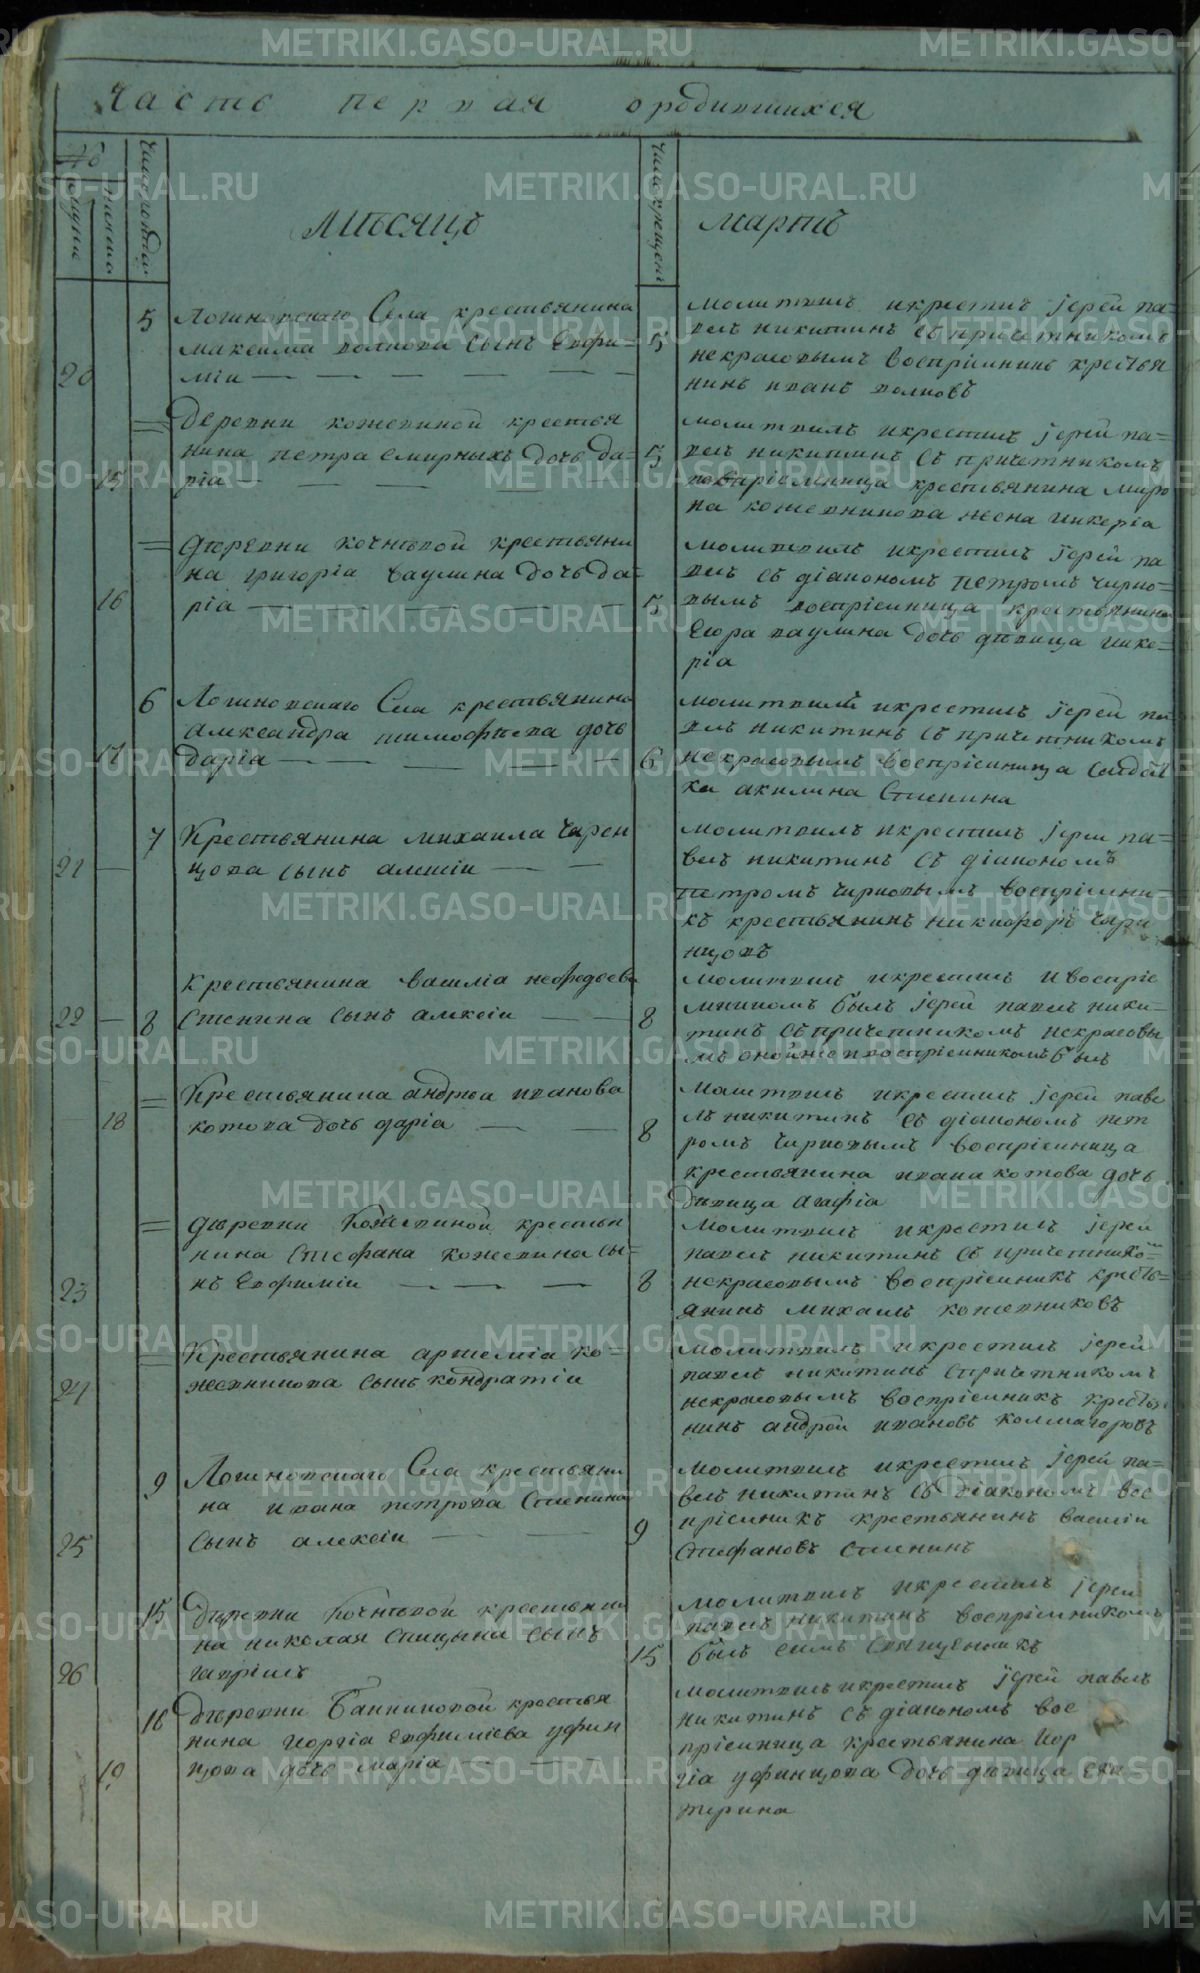 Часть первая о родившихся
№
Число рождения
Число крещения
Мѣсяцъ
мартъ
20
5
Логиновскаго Села крестьянина
максима волкова сынъ Евфи-
мiи
5
молитвилъ икрестилъ iерей па-
велъ никитинъ съ причетникомъ
некрасовымъ воспрiемникъ крестья
нинъ иванъ волковъ
15
=
деревни кожевиной крестья
нина петра смирныхъ дочь да-
рiа
5
молитвилъ икрестилъ iерей па-
велъ никитинъ съ причетникомъ
воспрiемница крестьянина миро
на кожевникова жена гликерiа
16
=
деревни кочнѣвой крестьяни
на григорiа ваулина дочь да-
рiа
5
молитвилъ икрестилъ iерей па
велъ съ дiакономъ петромъ чирко-
вымъ воспрiемница крестьянина
Егора ваулина дочь дѣвица глике-
рiа
17
6
Логиновскаго Села крестьянина
александра тимофѣева дочь
дарiа
6
молитвилъ икрестилъ iерей па
велъ никитинъ съ причетникомъ
некрасовымъ воспрiемница солдат
ка акилина Стенина
21
7
Крестьянина михаила Чарен
цова сынъ алексiи
молитвилъ икрестилъ iерей па-
велъ никитинъ съ дiакономъ
петромъ чирковымъ воспрiемни-
къ крестьянинъ никифоръ чаре
нцовъ
22
8
крестьянина василiа нефедьева
Стенина сынъ алексiи
8
молитвилъ икрестилъ ивоспрiе
мникомъ былъ iерей павелъ ники-
тинъ съ причетникомъ некрасовы
мъ онойже воспрiемникомъ былъ
18
=
Крестьянина андрѣа иванова
котова дочь дарiа
8
молитвилъ икрестилъ iерей паве
лъ никитинъ съ дiакономъ пет
ромъ чирковымъ воспрiемница
крестьянина ивана котова дочь
дѣвица агафiа
23
=
деревни кожевиной крестья
нина Стефана кожевина сы-
нъ Евфимiи
8
молитвилъ икрестилъ iерей
павелъ никитинъ съ причетнико-
некрасовымъ воспрiемникъ кресть-
янинъ михаилъ кожевниковъ
24
=
Крестьянина артемiа ко-
жевникова сынъ кондратiи
молитвилъ икрестилъ iерей
павелъ никитинъ спричетникомъ
некрасовымъ воспрiемникъ крестья
нинъ андрей ивановъ колмагоровъ
25
9
Логиновскаго Села крестьяни
на ивана петрова Стенина
сынъ алексiи
9
молитвилъ икрестилъ iерей па-
велъ никитинъ съ дiакономъ вос
прiемникъ крестьянинъ василiи
Стефановъ Стенинъ
26
15
Деревни Кочнѣвой крестьяни
на николая Спицына сынъ
гаврiилъ
15
молитвилъ икрестилъ iерей
павелъ никитинъ воспрiемникомъ
былъ симъ священникъ
19
16
Деревни Банниковой крестья
нина георгiа Евфимiева уфин
цова дочь марiа
молитвилъ икрестилъ iерей павелъ
никитинъ съ дiакономъ вос
прiемница крестьянина Геор
гiа уфинцова дочь дѣвица ека
терина
METRIKI.GASO-URAL.RU